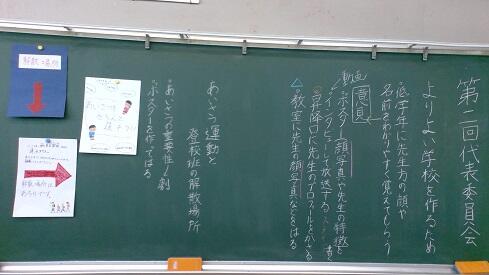 第二回代表委員会
よりよい学校を作るため
*低学年に先生方の顔や
名前をわかりやすく覚えてもらう
意見
動画
*ポスター 顔写真や先生の特徴と
*インタビューして放送する
◎昇降口に先生のプロフィールとかはる
△教室に先生の顔写真などをはる
あいさつ運動と
登校班の解散場所
*あいさつの重要性・劇
*ポスターを作ってはる
あいさつで
解散場所